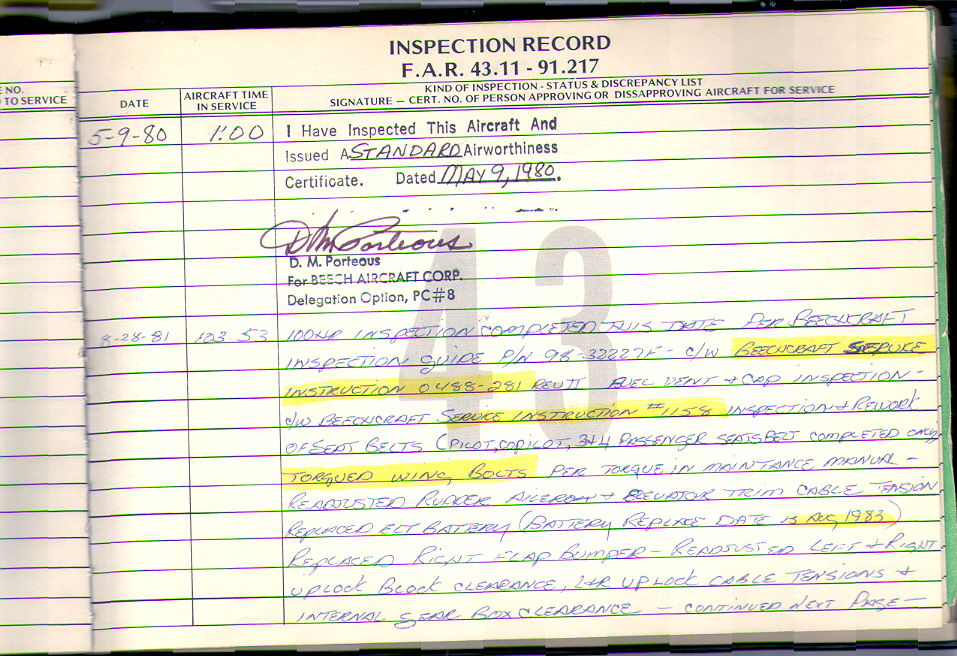 INSPECTION RECORD
F.A.R. 43.11 - 91.217
E NO.
TO SERVICE
DATE
AIRCRAFT TIME
IN SERVICE
KIND OF INSPECTION - STATUS & DISCREPANCY LIST
SIGNATURE — CERT. NO. OF PERSON APPROVING OR DISSAPPROVING AIRCRAFT FOR SERVICE
5-9-80 1:00 I Have Inspected This Aircraft And
Issued A STANDARD Airworthiness
Certificate. Dated MAY 9, 1980.
D M Porteous
D. M. Porteous
For BEECH AIRCRAFT CORP.
Delegation Option, PC#8
43
8-28-81 103.53 100HR INSPECTION COMPLETED THIS DATE PER BEECHCRAFT
INSPECTION GUIDE P/N 98-32227F - C/W BEECHCRAFT SERVICE
INSTRUCTION 0488-281 REV II FUEL VENT & CAP INSPECTION -
C/W BEECHCRAFT SERVICE INSTRUCTION #1158 INSPECTION & REWORK
OF SEAT BELTS (PILOT, COPILOT, 3&4 PASSENGER SEATS BELT COMPLETED ONLY
TORQUED WING BOLTS PER TORQUE IN MAINTANCE MANUAL -
READJUSTED RUDDER AILERON & ELEVATOR TRIM CABLE TENSION
REPLACED ELT BATTERY (BATTERY REPLACE DATE IS AUG 1983)
REPLACED RIGHT FLAP BUMPER - READJUSTED LEFT & RIGHT
UPLOCK BLOCK CLEARANCE, L&R UPLOCK CABLE TENSIONS &
INTERNAL GEAR BOX CLEARANCE - CONTINUED NEXT PAGE -